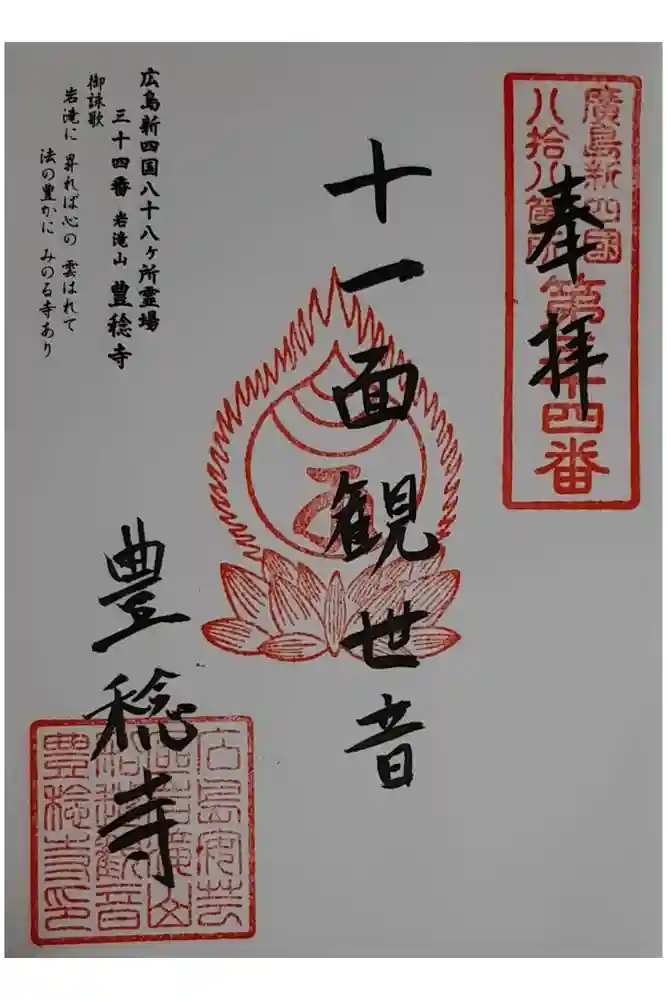 廣島新四國
八拾八箇所
第三十四番
奉拝
十一面観世音
豊稔寺
広島新四国八十八ヶ所霊場
三十四番 岩滝山 豊稔寺
御詠歌
岩滝に 昇れば心の 雲はれて
法の豊かに みのる寺あり